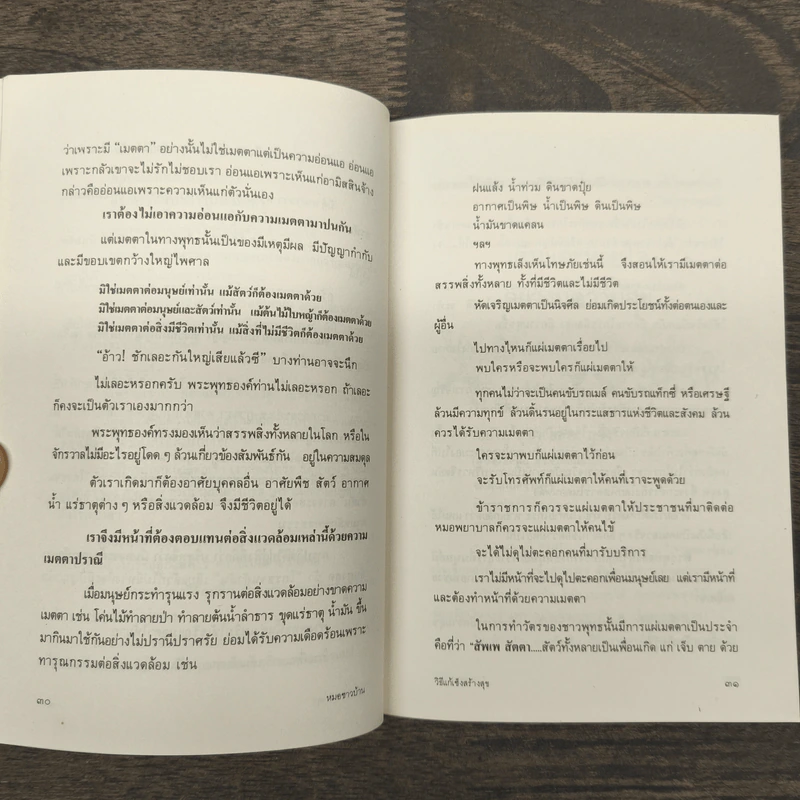 ว่าเพราะมี “เมตตา” อย่างนั้นไม่ใช่เมตตาแต่เป็นความอ่อนแอ อ่อนแอ
เพราะกลัวเขาจะไม่รักไม่ชอบเรา อ่อนแอเพราะเห็นแก่อามิสสินจ้าง
กล่าวคืออ่อนแอเพราะความเห็นแก่ตัวนั่นเอง
เราต้องไม่เอาความอ่อนแอกับความเมตตามาปนกัน
แต่เมตตาในทางพุทธนั้นเป็นของมีเหตุมีผล มีปัญญากำกับ
และมีขอบเขตกว้างใหญ่ไพศาล
มิใช่เมตตาต่อมนุษย์เท่านั้น แม้สัตว์ก็ต้องเมตตาด้วย
มิใช่เมตตาต่อมนุษย์และสัตว์เท่านั้น แม้ต้นไม้ใบหญ้าก็ต้องเมตตาด้วย
มิใช่เมตตาต่อสิ่งมีชีวิตเท่านั้น แม้สิ่งที่ไม่มีชีวิตก็ต้องเมตตาด้วย
“อ้าว! ชักเลอะกันใหญ่เสียแล้วซี” บางท่านอาจจะนึก
ไม่เลอะหรอกครับ พระพุทธองค์ท่านไม่เลอะหรอก ถ้าเลอะ
ก็คงจะเป็นตัวเราเองมากกว่า
พระพุทธองค์ทรงมองเห็นว่าสรรพสิ่งทั้งหลายในโลก หรือใน
จักรวาลไม่มีอะไรอยู่โดด ๆ ล้วนเกี่ยวข้องสัมพันธ์กัน อยู่ในความสมดุล
ตัวเราเกิดมาก็ต้องอาศัยบุคคลอื่น อาศัยพืช สัตว์ อากาศ
น้ำ แร่ธาตุต่าง ๆ หรือสิ่งแวดล้อม จึงมีชีวิตอยู่ได้
เราจึงมีหน้าที่ต้องตอบแทนต่อสิ่งแวดล้อมเหล่านี้ด้วยความ
เมตตาปรานี
เมื่อมนุษย์กระทำรุนแรง รุกรานต่อสิ่งแวดล้อมอย่างขาดความ
เมตตา เช่น โค่นไม้ทำลายป่า ทำลายต้นน้ำลำธาร ขุดแร่ธาตุ น้ำมัน ขึ้น
มากินมาใช้กันอย่างไม่ปรานีปราศรัย ย่อมได้รับความเดือดร้อนเพราะ
ทารุณกรรมต่อสิ่งแวดล้อม เช่น
๓๐
หมอชาวบ้าน
ฝนแล้ง น้ำท่วม ดินขาดปุ๋ย
อากาศเป็นพิษ น้ำเป็นพิษ ดินเป็นพิษ
น้ำมันขาดแคลน
ฯลฯ
ทางพุทธเล็งเห็นโทษภัยเช่นนี้ จึงสอนให้เรามีเมตตาต่อ
สรรพสิ่งทั้งหลาย ทั้งที่มีชีวิตและไม่มีชีวิต
หัดเจริญเมตตาเป็นนิจศีล ย่อมเกิดประโยชน์ทั้งต่อตนเองและ
ผู้อื่น
ไปทางไหนก็แผ่เมตตาเรื่อยไป
พบใครหรือจะพบใครก็แผ่เมตตาให้
ทุกคนไม่ว่าจะเป็นคนขับรถเมล์ คนขับรถแท็กซี่ หรือเศรษฐี
ล้วนมีความทุกข์ ล้วนดิ้นรนอยู่ในกระแสธารแห่งชีวิตและสังคม ล้วน
ควรได้รับความเมตตา
ใครจะมาพบก็แผ่เมตตาไว้ก่อน
จะรับโทรศัพท์ก็แผ่เมตตาให้คนที่เราจะพูดด้วย
ข้าราชการก็ควรจะแผ่เมตตาให้ประชาชนที่มาติดต่อ
หมอพยาบาลก็ควรจะแผ่เมตตาให้คนไข้
จะได้ไม่ดุไม่ตะคอกคนที่มารับบริการ
เราไม่มีหน้าที่จะไปดุไปตะคอกเพื่อนมนุษย์เลย แต่เรามีหน้าที่
และต้องทำหน้าที่ด้วยความเมตตา
ในการทำวัตรของชาวพุทธนั้นมีการแผ่เมตตาเป็นประจำ
คือที่ว่า “สัพเพ สัตตา.....สัตว์ทั้งหลายเป็นเพื่อนเกิด แก่ เจ็บ ตาย ด้วย
วิธีแก้เซ็งสร้างสุข
๓๑